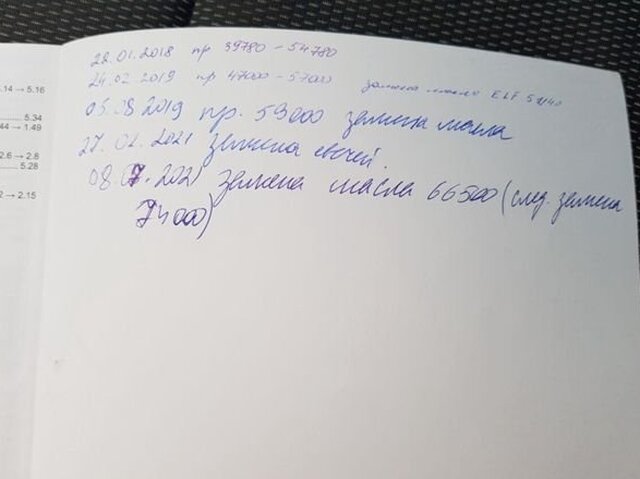 .14 → 5.16
5.34
44 → 1.49
2.6 → 2.8
5.28
2 → 2.15
28.01.2018 пр 39780 - 54780
24.02 2019 пр 47000 - 57000 замена масла ELF 5W40
05.08 2019 пр. 59000 замена масла
27.02.2021 замена свечей.
08.07.2021 замена масла 66500 (след. замена
74000)